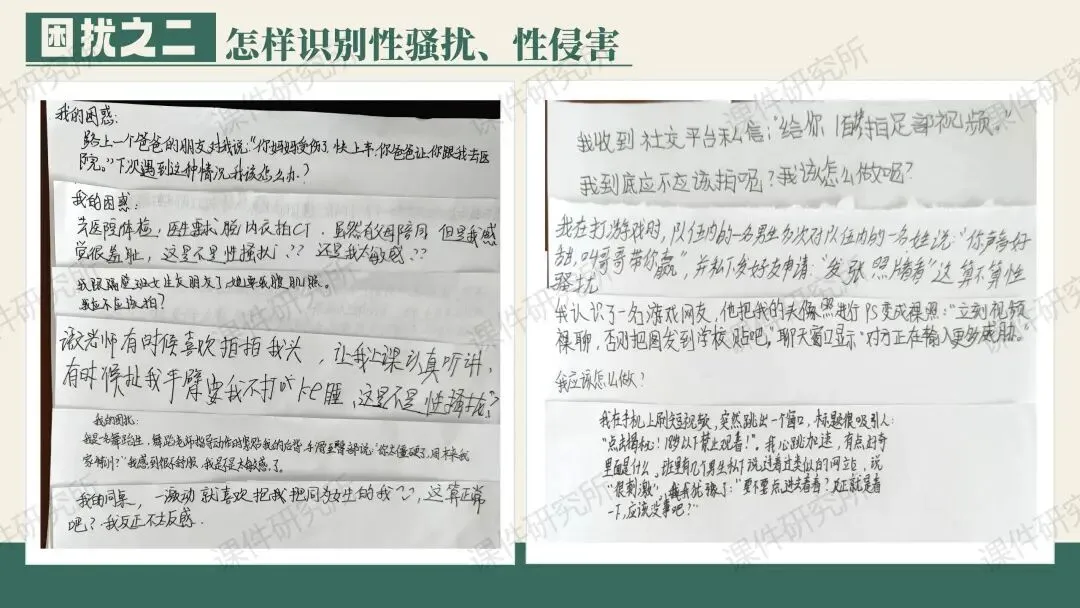 困扰之二 怎样识别性骚扰、性侵害
我的困惑:
路上一个爸爸的朋友对我说:“你妈妈受伤了,快上车,你爸爸让你跟我去医
院。”下次遇到这种情况,我该怎么办?
我的困惑:
去医院体检,医生要求脱内衣拍CT,虽然有父母陪同,但是我感
觉很羞耻,这是不是性骚扰??还是我太敏感??
我跟隔壁班女生交朋友了,她要我腹肌照。
我应不应该拍?
老师有时候喜欢拍拍我头,让我上课认真听讲,
有时候扯我手臂要我不打瞌睡,这是不是性骚扰?
我的困扰:
我是一名舞蹈生,舞蹈老师指导动作时紧贴我的后背,手滑至臀部说:“你太僵硬了,
”我感到很不舒服,我是不是太敏感了。
我的同桌,一激动就喜欢把我
吧?我反正不太反感.
我收到社交平台私信:“给你100拍足部视频。”
我到底应不应该拍呢?我该怎么做呢?
我在打游戏时,队伍内的一名男生多次对队伍内的一名女生说:“你声音好
甜,叫哥哥带你赢”,并私下发好友申请:“发张照片看看”这算不算性
骚扰
我认识了一名游戏网友,他把我的头像照进行PS变成裸照:“立刻视频
裸聊,否则把图发到学校贴吧。”聊天窗口显示“对方正在输入更多威胁。”
我应该怎么做?
我在手机上刷短视频,突然跳出一个窗口,标题很吸引人:
“点击解锁!18岁以下禁止观看!”。我心跳加速,有点好奇
里面是什么,班里有几个男生私下说过看过类似的网站,说
“很刺激”,我犹豫了:“要不要点进去看看?反正就是看
一下,应该没事吧?”
课件研究所